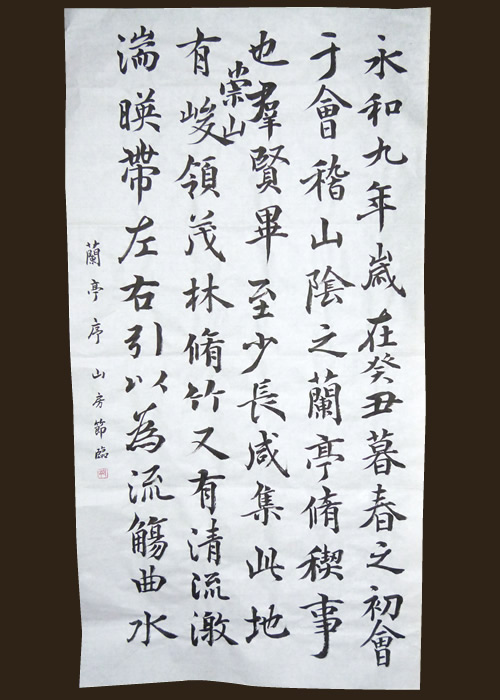 永和九年歲在癸丑暮春之初會
于會稽山陰之蘭亭脩稧事
也羣賢畢至少長咸集此地
有崇山峻領茂林脩竹又有清流激
湍暎帶左右引以為流觴曲水
蘭亭序 山房節臨